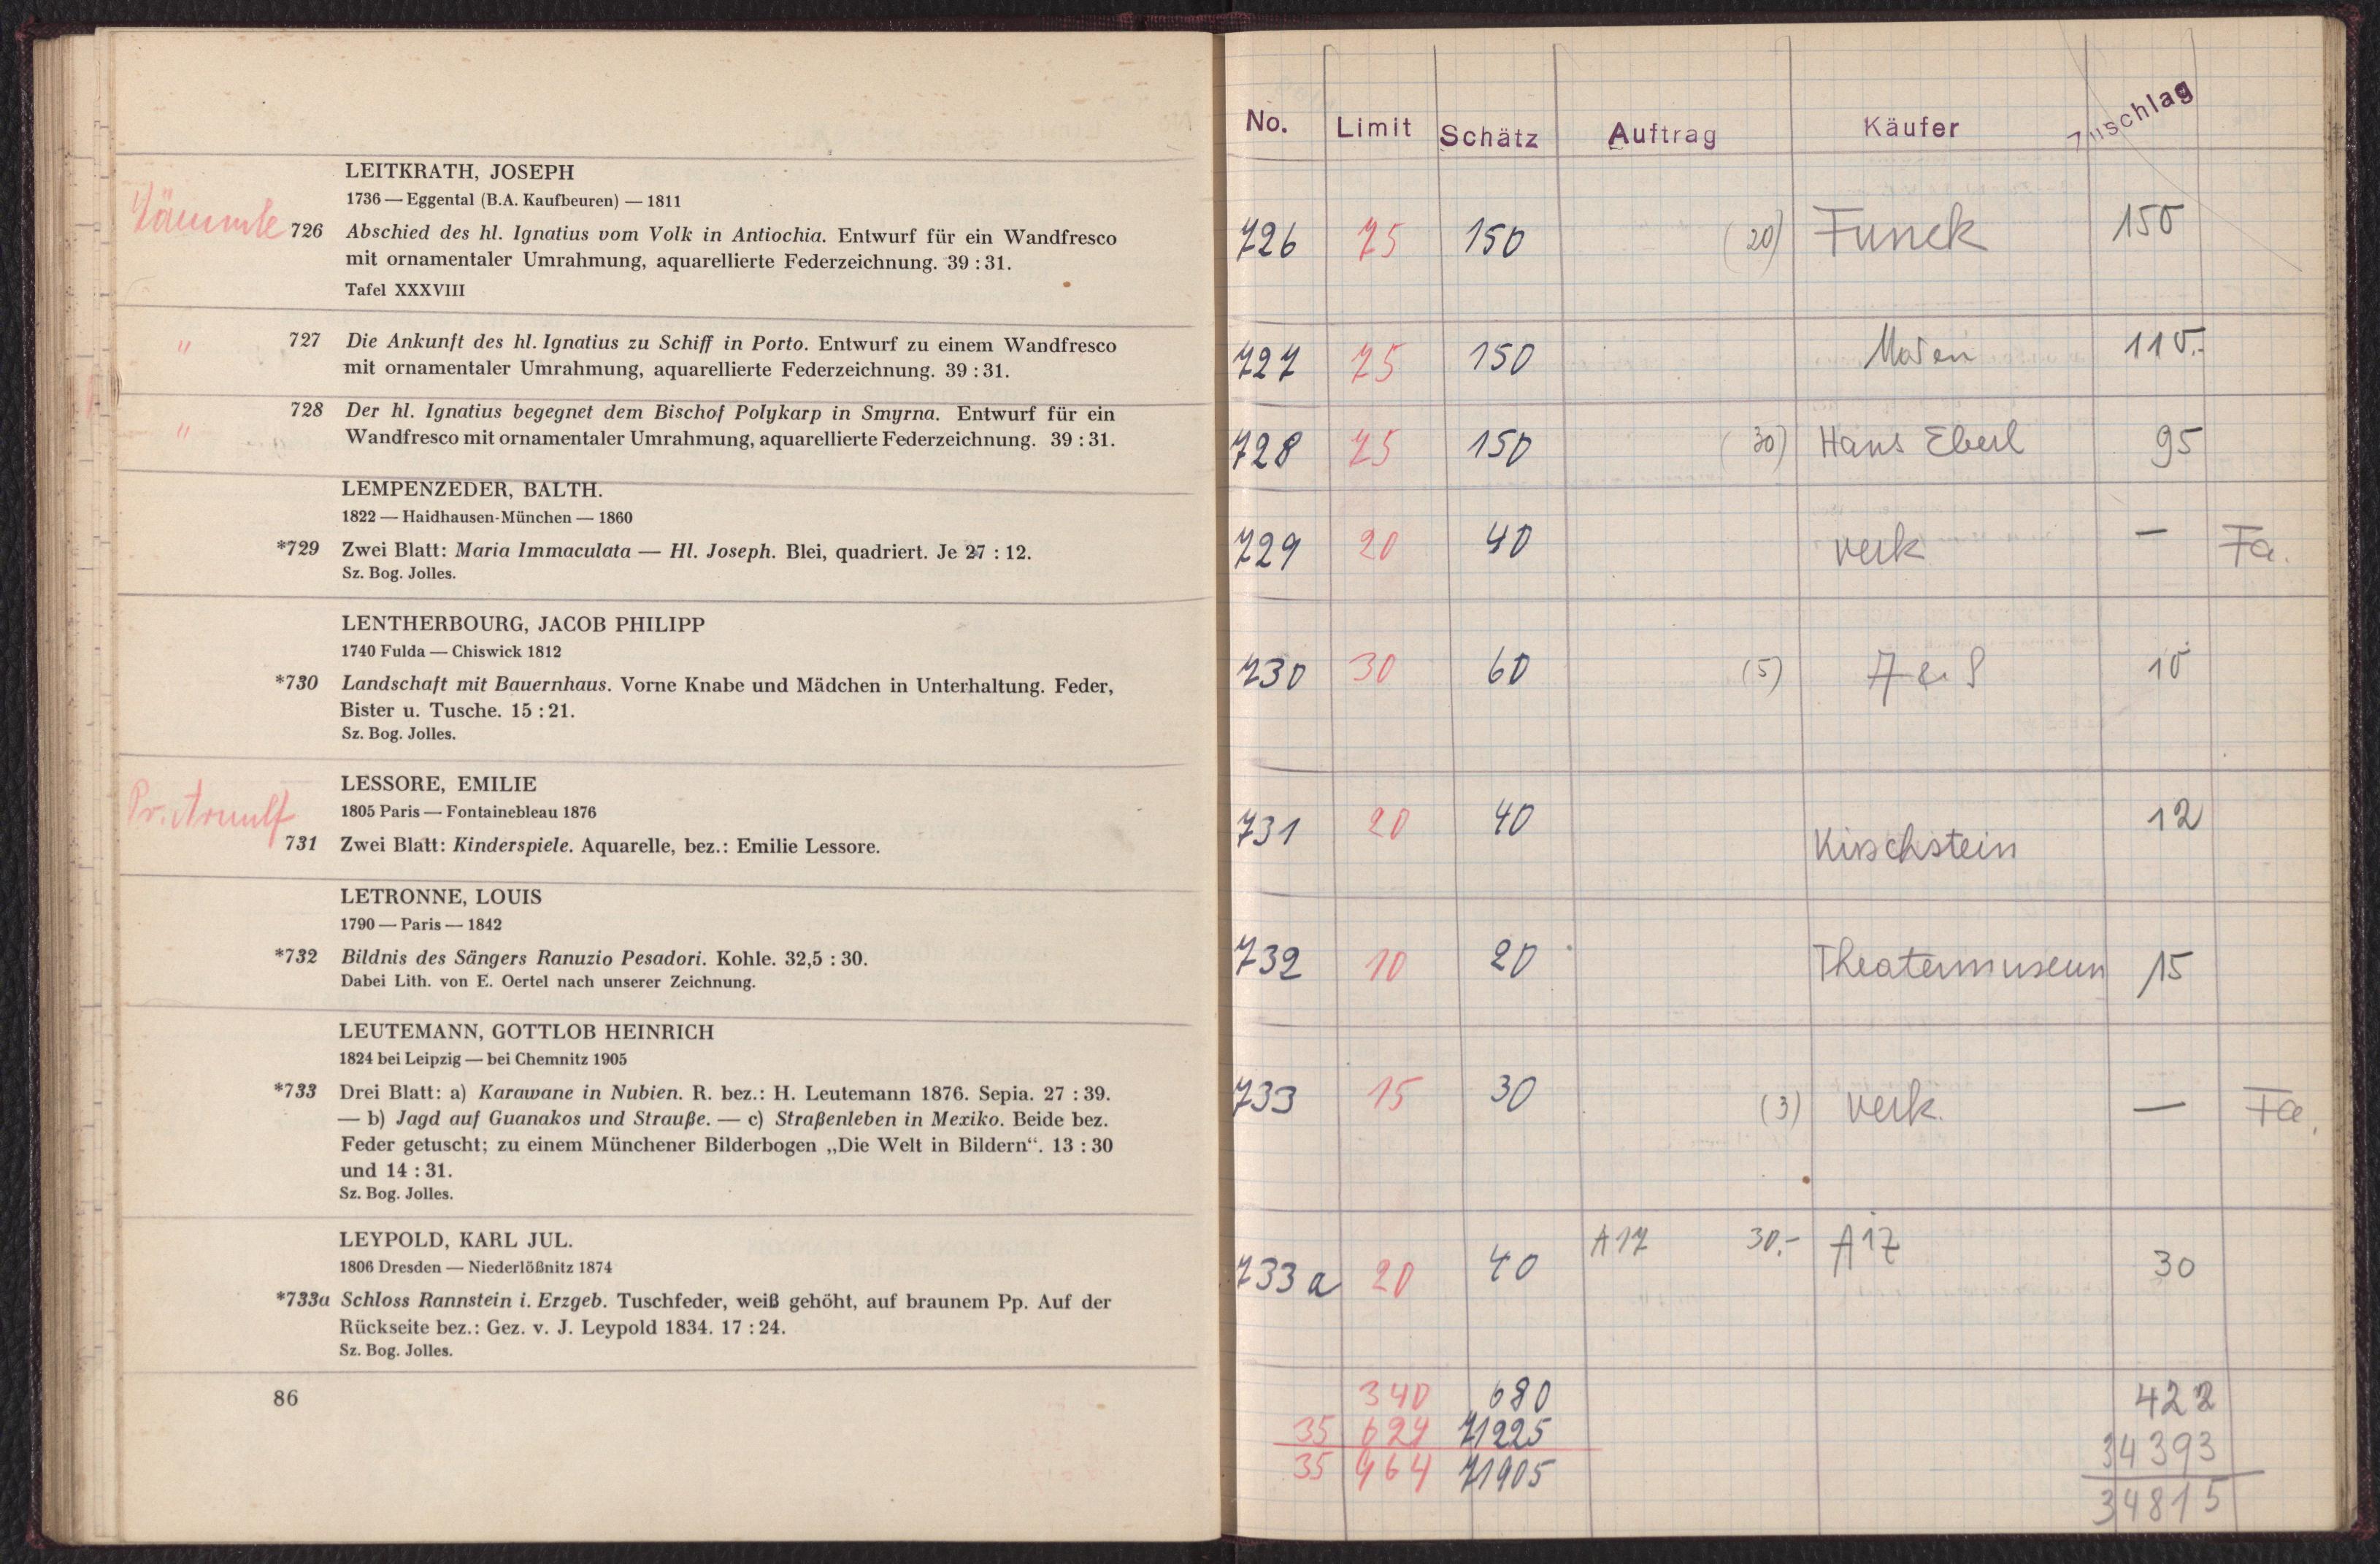 LEITKRATH, JOSEPH
1736 — Eggental (B.A. Kaufbeuren) — 1811
726 Abschied des hl. Ignatius vom Volk in Antiochia. Entwurf für ein Wandfresco
mit ornamentaler Umrahmung, aquarellierte Federzeichnung. 39 : 31.
Tafel XXXVIII
" 727 Die Ankunft des hl. Ignatius zu Schiff in Porto. Entwurf zu einem Wandfresco
mit ornamentaler Umrahmung, aquarellierte Federzeichnung. 39 : 31.
728 Der hl. Ignatius begegnet dem Bischof Polykarp in Smyrna. Entwurf für ein
" Wandfresco mit ornamentaler Umrahmung, aquarellierte Federzeichnung. 39 : 31.
LEMPENZEDER, BALTH.
1822 — Haidhausen-München — 1860
*729 Zwei Blatt: Maria Immaculata — Hl. Joseph. Blei, quadriert. Je 27 : 12.
Sz. Bog. Jolles.
LENTHERBOURG, JACOB PHILIPP
1740 Fulda — Chiswick 1812
*730 Landschaft mit Bauernhaus. Vorne Knabe und Mädchen in Unterhaltung. Feder,
Bister u. Tusche. 15 : 21.
Sz. Bog. Jolles.
LESSORE, EMILIE
Pr. Arnulf 1805 Paris — Fontainebleau 1876
731 Zwei Blatt: Kinderspiele. Aquarelle, bez.: Emilie Lessore.
LETRONNE, LOUIS
1790 — Paris — 1842
*732 Bildnis des Sängers Ranuzio Pesadori. Kohle. 32,5 : 30.
Dabei Lith. von E. Oertel nach unserer Zeichnung.
LEUTEMANN, GOTTLOB HEINRICH
1824 bei Leipzig — bei Chemnitz 1905
*733 Drei Blatt: a) Karawane in Nubien. R. bez.: H. Leutemann 1876. Sepia. 27 : 39.
— b) Jagd auf Guanakos und Strauße. — c) Straßenleben in Mexiko. Beide bez.
Feder getuscht; zu einem Münchener Bilderbogen „Die Welt in Bildern“. 13 : 30
und 14 : 31.
Sz. Bog. Jolles.
LEYPOLD, KARL JUL.
1806 Dresden — Niederlößnitz 1874
*733a Schloss Rannstein i. Erzgeb. Tuschfeder, weiß gehöht, auf braunem Pp. Auf der
Rückseite bez.: Gez. v. J. Leypold 1834. 17 : 24.
Sz. Bog. Jolles.
86
No. Limit Schätz Auftrag Käufer Zuschlag
726 75 150 (20) Funck 150
727 75 150 110.-
728 75 150 (30) Hans Eberl 95
729 20 40 verk — Fa.
730 30 60 (5) 10
731 20 40 Kirschstein 12
732 10 20 Theatermuseum 15
733 15 30 (3) verk. — Fa.
733a 20 40 A17 30.- A17 30
340 680 422
35 624 71225 34393
35 964 71905 34815